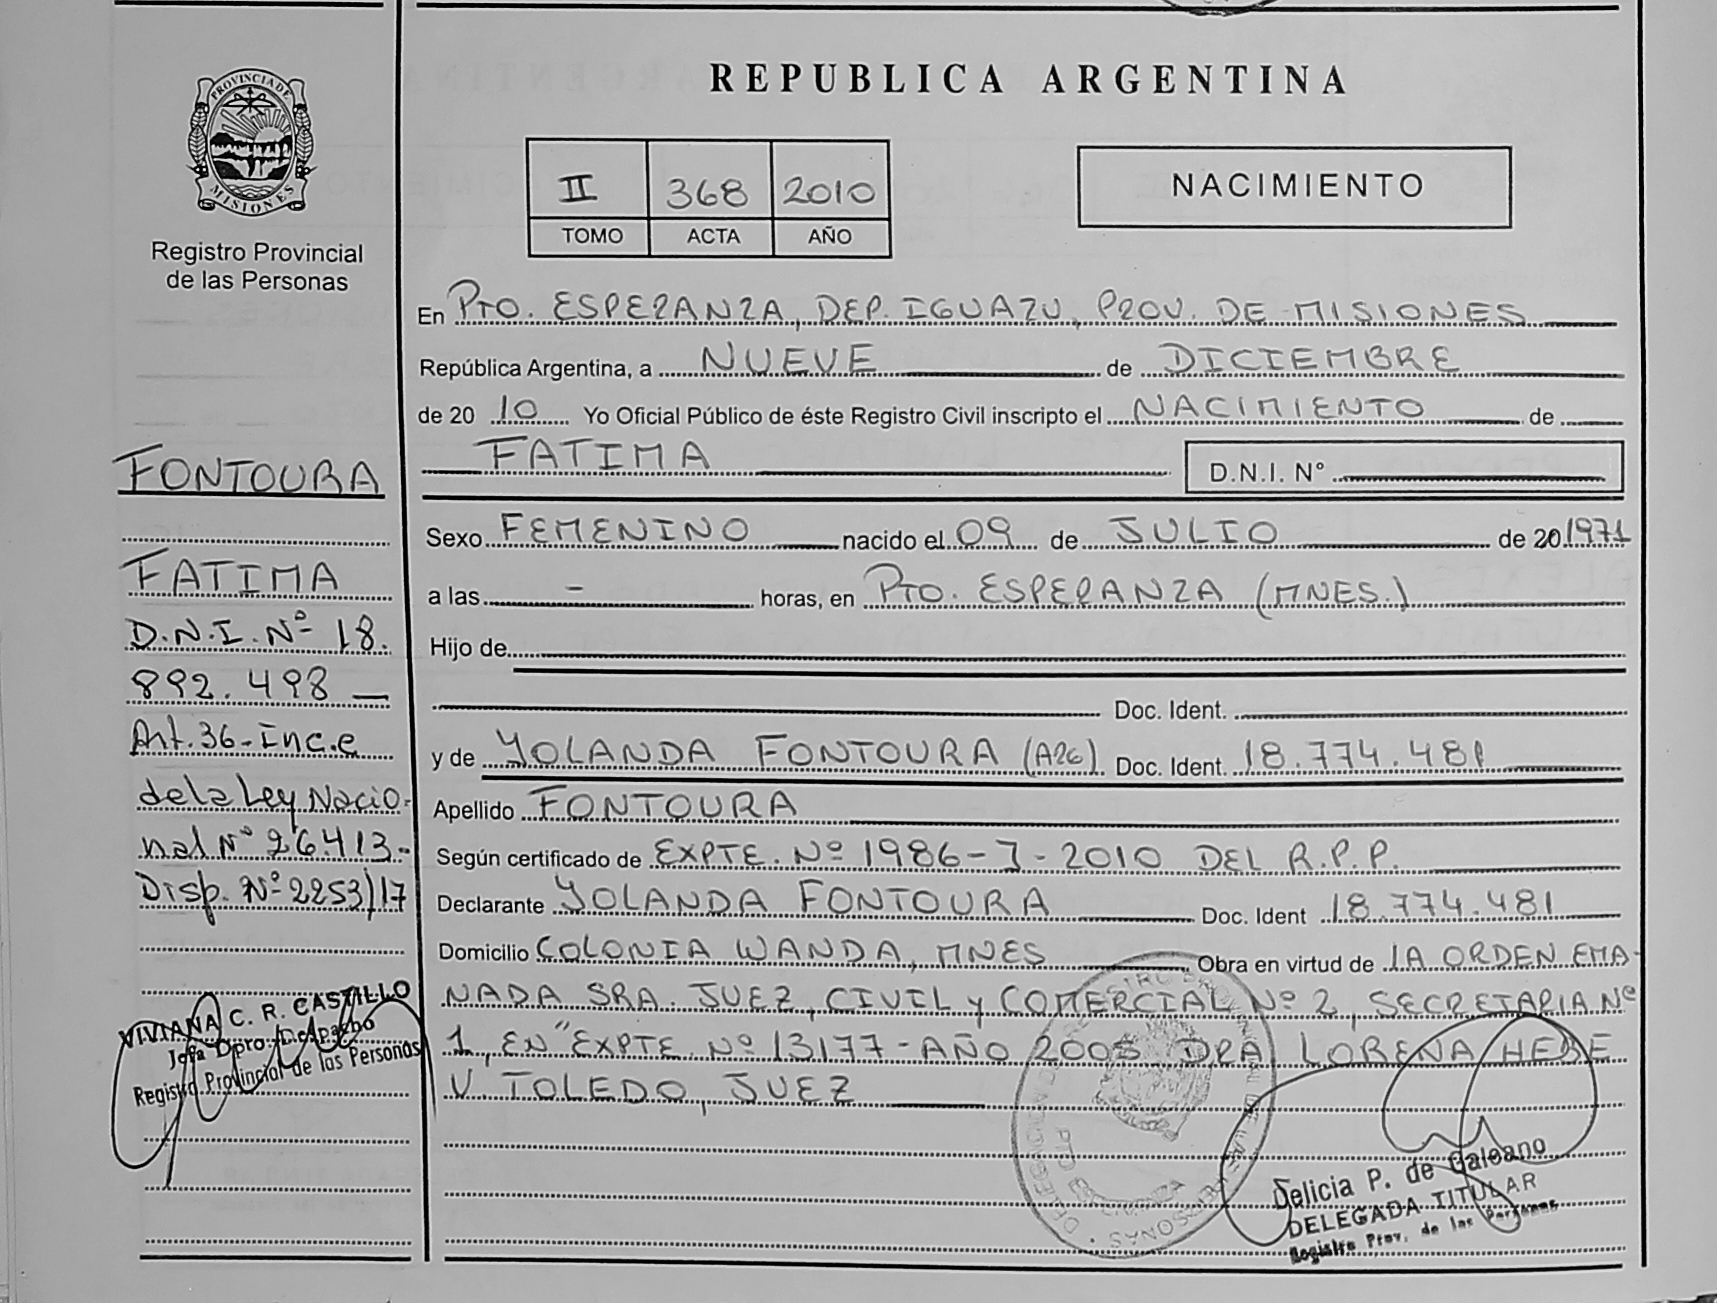 PROVINCIA DE
MISIONES
Registro Provincial
de las Personas
FONTOURA
FATIMA
D.N.I. Nº 18.
892.498 —
Art. 36 - Inc. e
de la Ley Nacio-
nal Nº 26.413.-
Disp. Nº 2253/17
VIVIANA C. R. CASTILLO
Jefa Dpro. Despacho
Registro Provincial de las Personas
REPUBLICA ARGENTINA
II 368 2010
TOMO ACTA AÑO
NACIMIENTO
En PTO. ESPERANZA, DEP. IGUAZU, PROV. DE MISIONES
República Argentina, a NUEVE de DICIEMBRE
de 20 10 Yo Oficial Público de éste Registro Civil inscripto el NACIMIENTO de
FATIMA D.N.I. N°
Sexo FEMENINO nacido el 09 de JULIO de 20 1971
a las - horas, en PTO. ESPERANZA (MNES.)
Hijo de
Doc. Ident.
y de YOLANDA FONTOURA (A26) Doc. Ident. 18.774.481
Apellido FONTOURA
Según certificado de EXPTE. Nº 1986-J-2010 DEL R.P.P.
Declarante YOLANDA FONTOURA Doc. Ident 18.774.481
Domicilio COLONIA WANDA, MNES Obra en virtud de LA ORDEN EMA-
NADA SRA. JUEZ, CIVIL y COMERCIAL Nº 2, SECRETARIA Nº
1, EN "EXPTE. Nº 13177-AÑO DRA. LORENA HEBE
V. TOLEDO, JUEZ
DELEGACION PTO ESPERANZA
Delicia P. de Galeano
DELEGADA TITULAR
Registro Prov. de las Personas